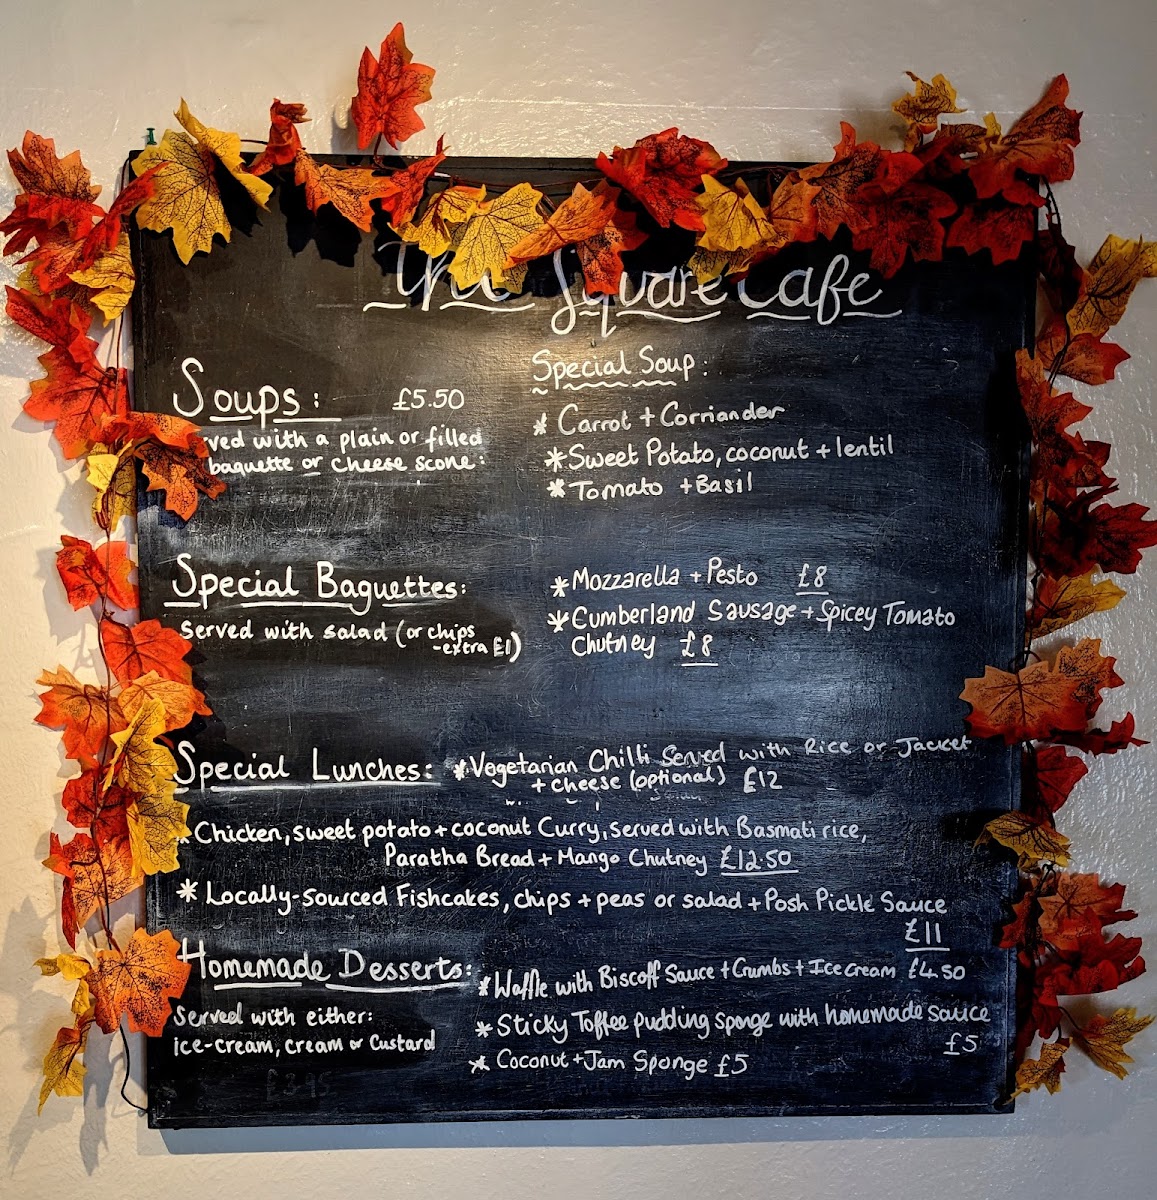 The Square Cafe
Soups: £5.50
ved with a plain or filled
baguette or cheese scone:
Special Soup:
* Carrot + Corriander
* Sweet Potato, coconut + lentil
* Tomato + Basil
Special Baguettes:
Served with salad (or chips
-extra £1)
* Mozzarella + Pesto £8
* Cumberland Sausage + Spicey Tomato
Chutney £8
Special Lunches: * Vegetarian Chilli Served with Rice or Jacket
+ cheese (optional) £12
* Chicken, sweet potato + coconut Curry, served with Basmati rice,
Paratha Bread + Mango Chutney £12.50
* Locally-Sourced Fishcakes, chips + peas or salad + Posh Pickle Sauce
£11
Homemade Desserts:
Served with either:
ice-cream, cream or Custard
£3.95
* Waffle with Biscoff Sauce + Crumbs + Ice cream £4.50
* Sticky Toffee pudding sponge with homemade sauce
£5
* Coconut + Jam Sponge £5